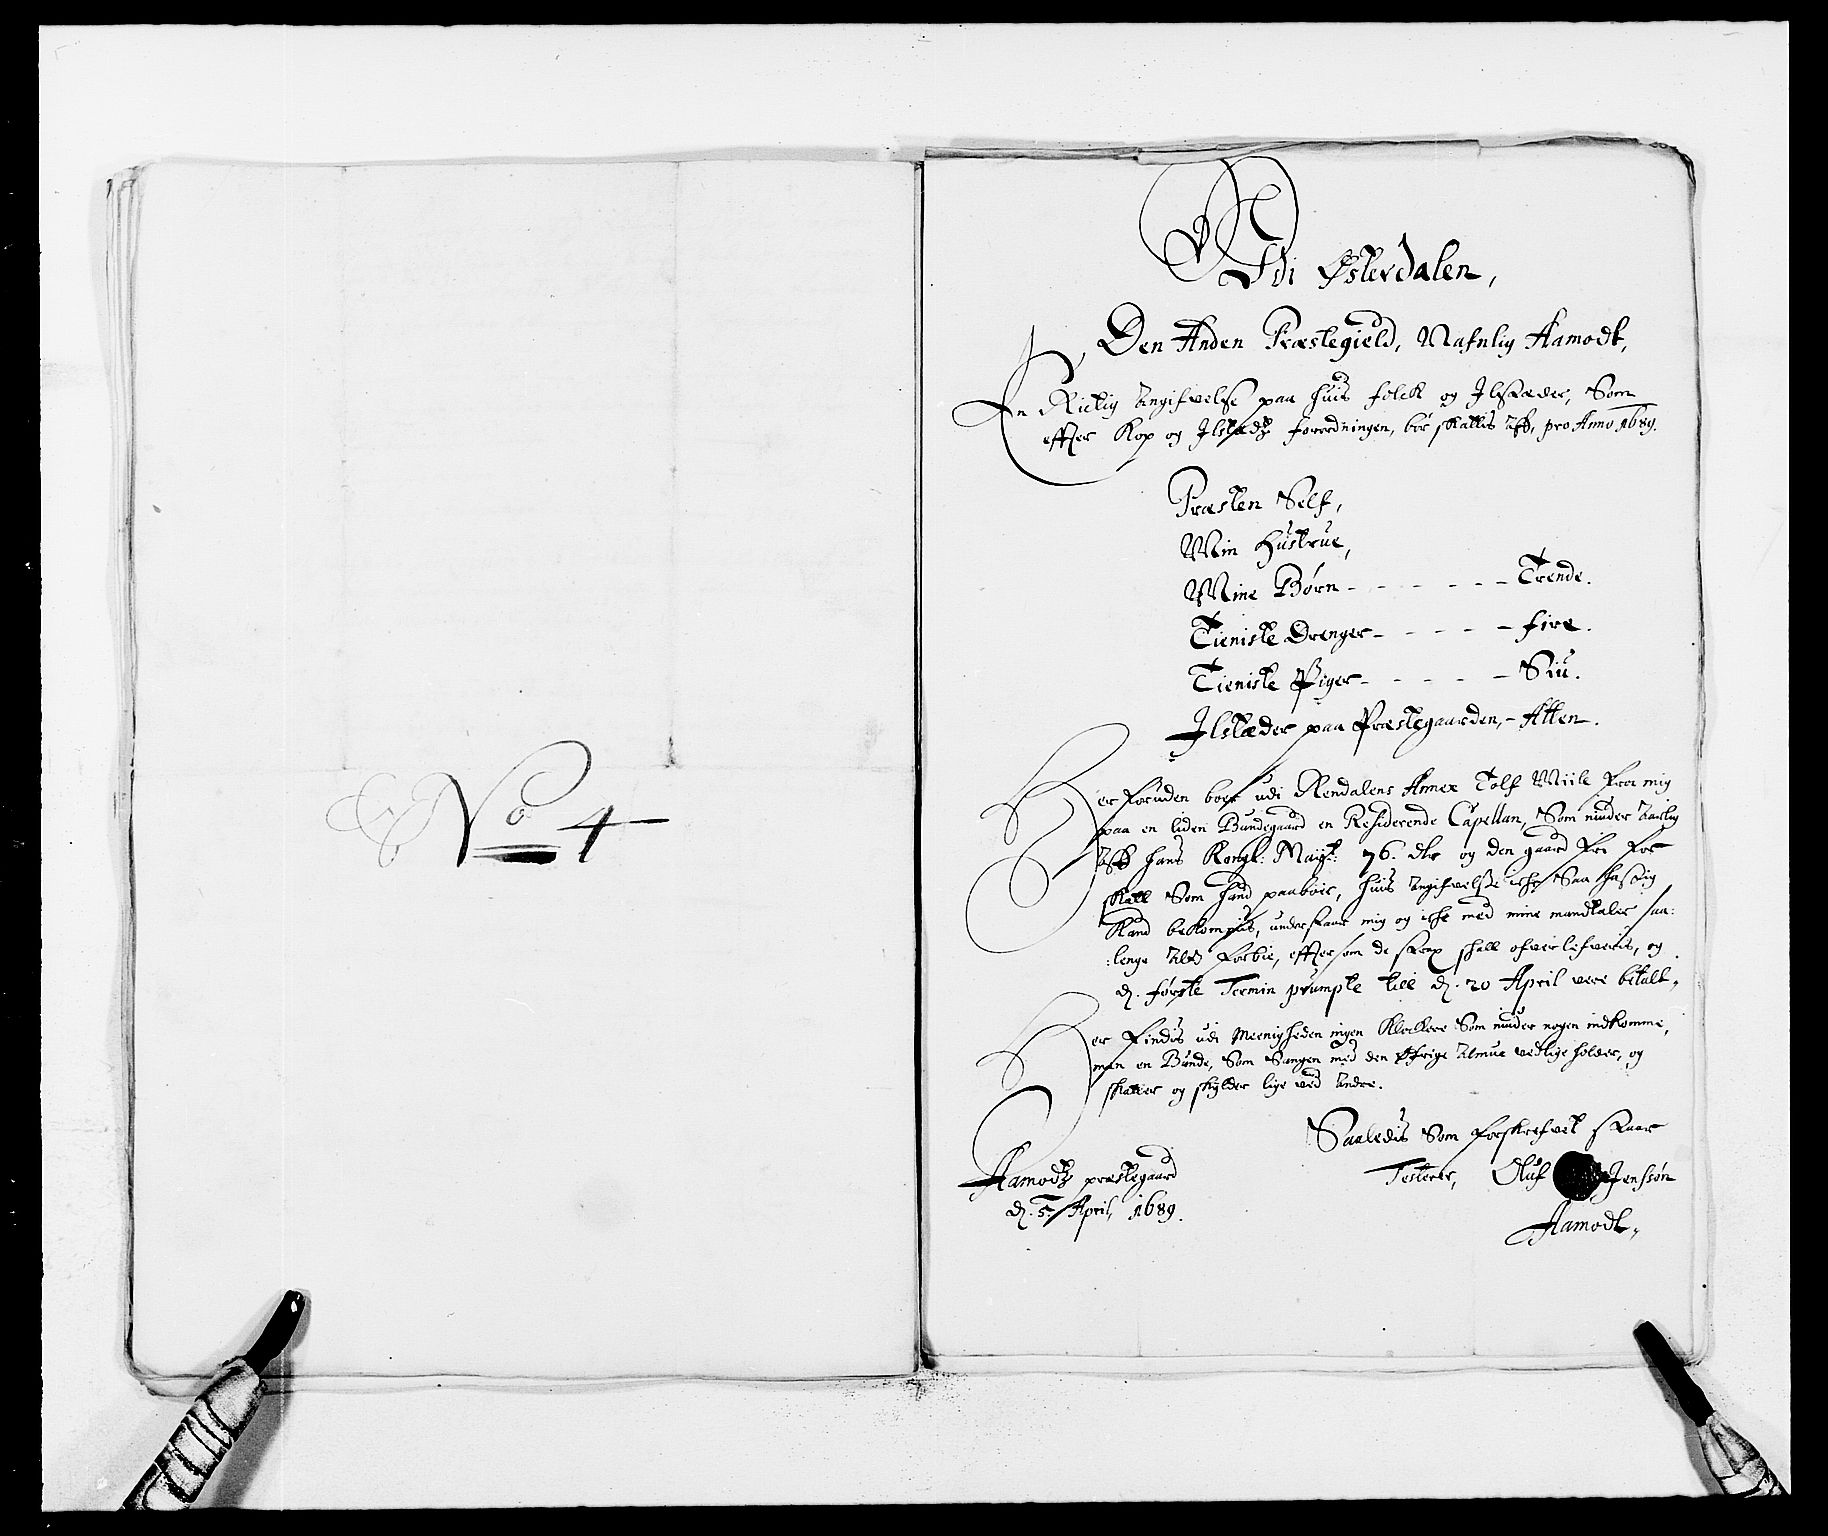 No 4
Udi Østerdalen,
Den Anden Præstegield, Nafnlig Aamodt,
En Rictig Angifvelse paa huis folck og Ilstæder, Som
effter Kop og Ilstædz forordningen, bør skattis aff, pro Anno 1689.
Præsten Self,
Min Hustrue,
Mine Børn - - - - - - - Trende.
Tieniste Drenger - - - - - fire.
Tieniste Piger - - - - - Siu.
Ilstæder paa Præstegaarden, - Atten.
Her foruden boer udi Rendalens Annex Tolf Miile fra mig
paa en liden Bundegaard en Residerende Capellan, Som niuder Aarlig
Aff hans Kongl: Mayst: 76. dlr og den gaard fri for
skatt Som hand paaboer, huis Angifvelse iche Saa hastig
kand bekommis, understaar mig og iche med mine mandtaler saa:
:lenge Alt forbie, efftersom de strax skall ofverlefveris, og
d. første Termin prumpte till d. 20 April vere betalt,
Her findis udi Meenigheden ingen Klockere Som niuder nogen indkomme,
men en Bunde, Som Sangen med den Øfrige Almue vedlige holder, og
skatter og skylder lige ved Andre.
Saaledis Som forskrefvet staar
Testerer, Oluf Jenssøn
Aamodt,
Aamodtz præstegaard
d. 5. April, 1689.